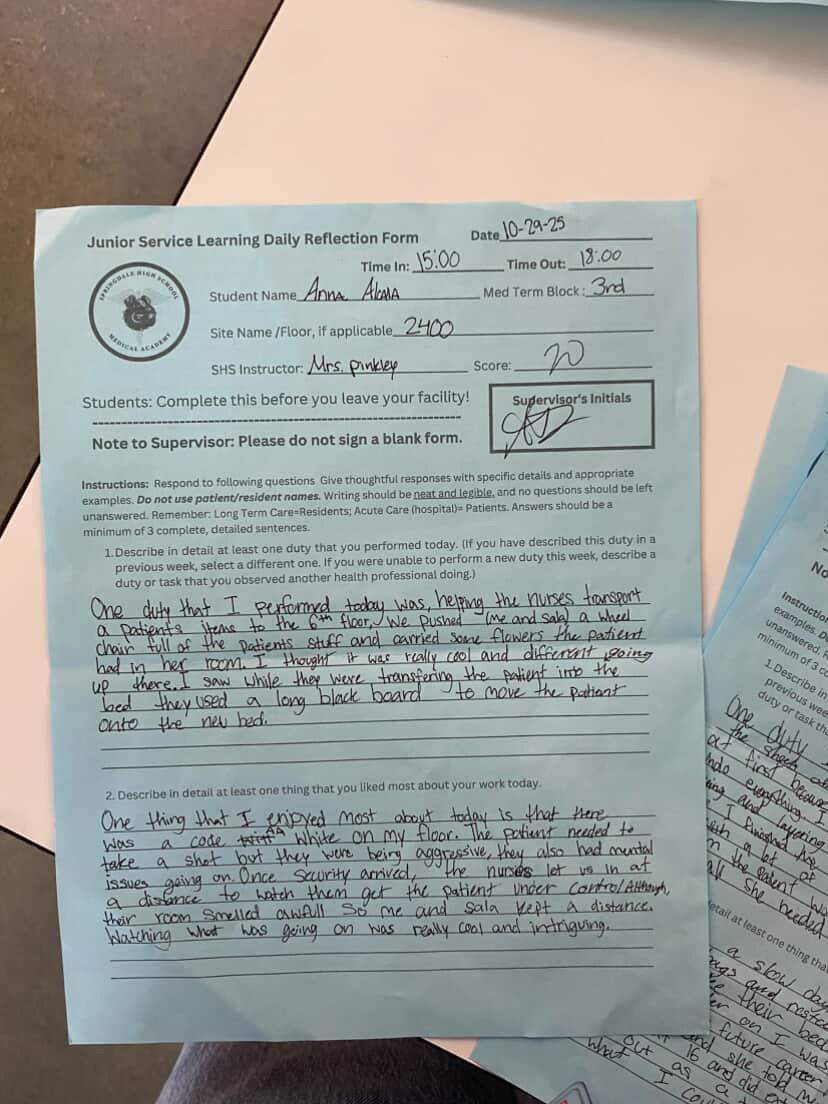 Junior Service Learning Daily Reflection Form
Date 10-29-25
Time In: 15:00 Time Out: 18:00
SPRINGDALE HIGH SCHOOL
MEDICAL ACADEMY
Student Name Anna Med Term Block: 3rd
Site Name /Floor, if applicable 2400
SHS Instructor: Mrs. Pinkley Score: 20
Students: Complete this before you leave your facility!
Supervisor's Initials
Note to Supervisor: Please do not sign a blank form.
Instructions: Respond to following questions Give thoughtful responses with specific details and appropriate
examples. Do not use patient/resident names. Writing should be neat and legible, and no questions should be left
unanswered. Remember: Long Term Care=Residents; Acute Care (hospital)= Patients. Answers should be a
minimum of 3 complete, detailed sentences.
1. Describe in detail at least one duty that you performed today. (If you have described this duty in a
previous week, select a different one. If you were unable to perform a new duty this week, describe a
duty or task that you observed another health professional doing.)
One duty that I performed today was, helping the nurses transport
a patients items to the 6th floor. We pushed (me and sala) a wheel
chair full of the patients stuff and carried some flowers the patient
had in her room. I thought it was really cool and different going
up there. I saw while they were transfering the patient into the
bed they used a long black board to move the patient
onto the new bed.
2. Describe in detail at least one thing that you liked most about your work today.
One thing that I enjoyed most about today is that there
was a code white on my floor. The patient needed to
take a shot but they were being aggressive, they also had mental
issues going on. Once security arrived, the nurses let us in at
a distance to watch them get the patient under control. Although,
their room smelled awfull so me and sala kept a distance.
Watching what was going on was really cool and intriguing.
No
Instructio
examples.
unanswered. R
minimum of 3 c
1. Describe in
previous week
duty or task tha
One duty
the
at first because
everything I
and
I finished
with a lot of
the patient
all she needed
etail at least one thing tha
a slow day
and
their bed
on I was
future career
and she told
16 and did
out as a
what I